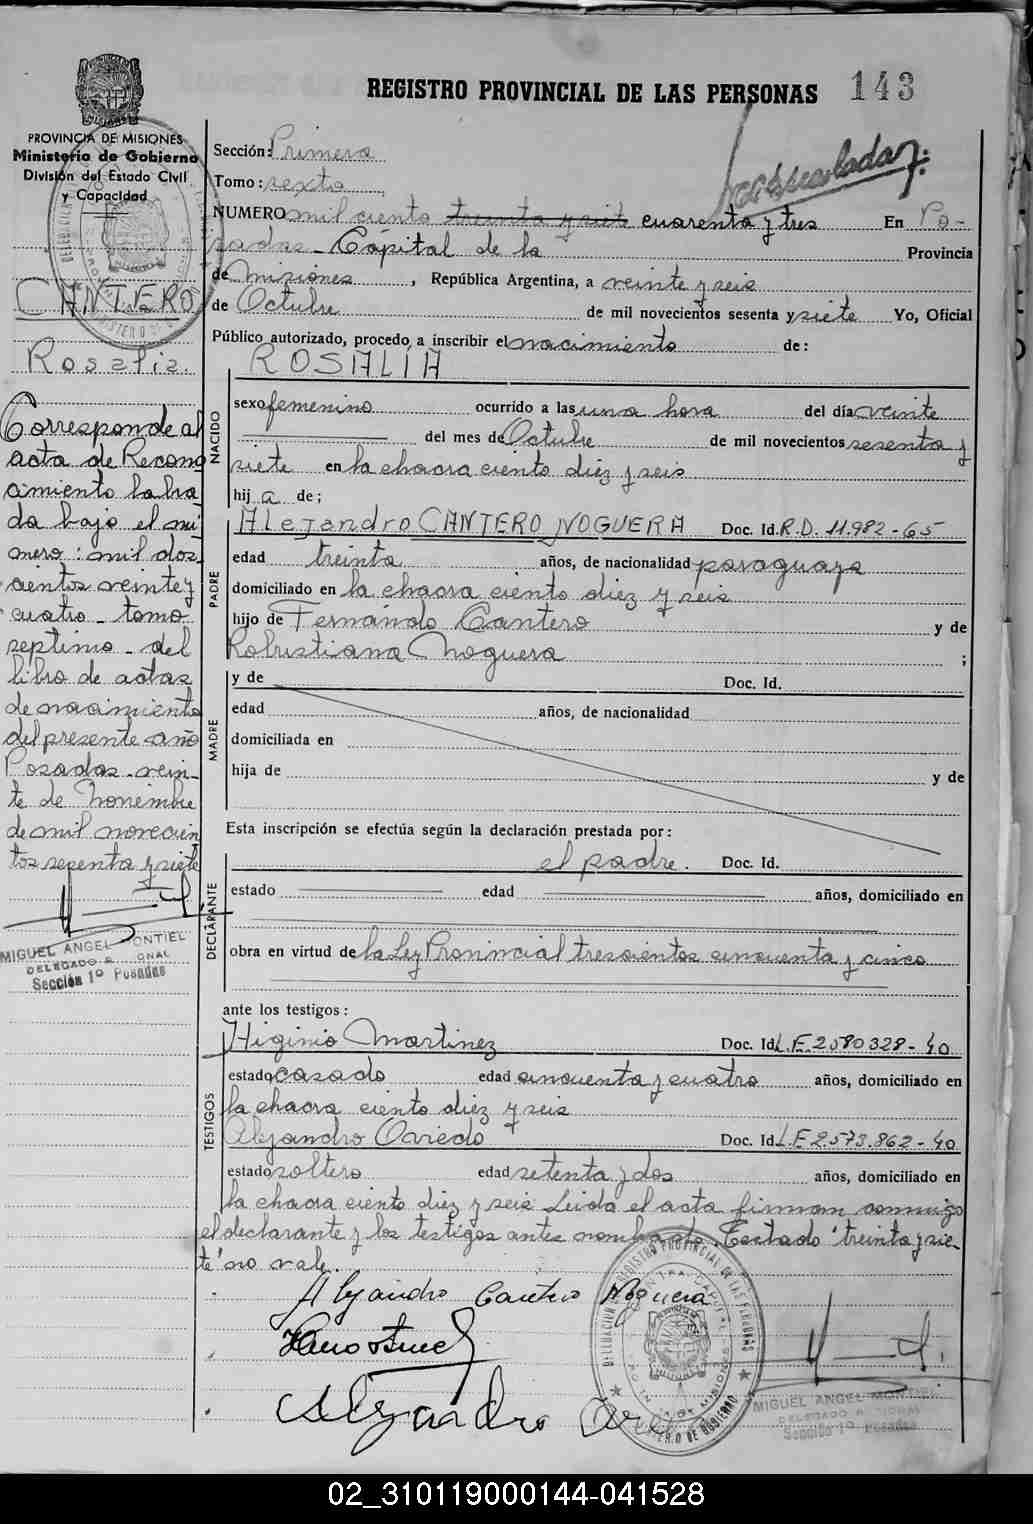 REGISTRO PROVINCIAL DE LAS PERSONAS 143
PROVINCIA DE MISIONES
Ministerio de Gobierno
División del Estado Civil
y Capacidad
CANTERO
Rosalia.
Corresponde al
acta de Recono
cimiento labra
da bajo el nú
mero: mil dos
cientos veinte y
cuatro - tomo
septimo - del
libro de actas
de nacimiento
del presente año
Posadas - vein
te de Noviembre
de mil novecien
tos sesenta y siete
MIGUEL ANGEL MONTIEL
Sección 1º Posadas
Sección: Primera
Tomo: sexto
NUMERO mil ciento treinta y siete cuarenta y tres En Po-
sadas - Cápital de la Provincia
de Misiones, República Argentina, a veinte y seis
de Octubre de mil novecientos sesenta y siete Yo, Oficial
Público autorizado, procedo a inscribir el nacimiento de:
ROSALIA
NACIDO
sexo femenino ocurrido a las una hora del día veinte
del mes de Octubre de mil novecientos sesenta y
siete en la chacra ciento diez y seis
hij a de;
PADRE
Alejandro CANTERO NOGUERA Doc. Id. R.D. 11.982-65
edad treinta años, de nacionalidad paraguaya
domiciliado en la chacra ciento diez y seis
hijo de Fernando Cantero y de
Robustiana Noguera ;
MADRE
y de Doc. Id.
edad años, de nacionalidad
domiciliada en
hija de y de
Esta inscripción se efectúa según la declaración prestada por:
DECLARANTE
el padre. Doc. Id.
estado edad años, domiciliado en
obra en virtud de la Ley Provincial trescientos cincuenta y cinco
ante los testigos:
TESTIGOS
Higinio Martinez Doc. Id. L.E. 2580328-40
estado casado edad cincuenta y cuatro años, domiciliado en
la chacra ciento diez y seis
Alejandro Oviedo Doc. Id. L.E. 2.573.862-40
estado soltero edad setenta y dos años, domiciliado en
la chacra ciento diez y seis Leida el acta firman conmigo
el declarante y los testigos antes nombrado. Testado "treinta y sie-
te" no vale.
Alejandro Cantero Noguera
Alejandro
MIGUEL ANGEL MONTIEL
Sección 1º Posadas
02_310119000144-041528